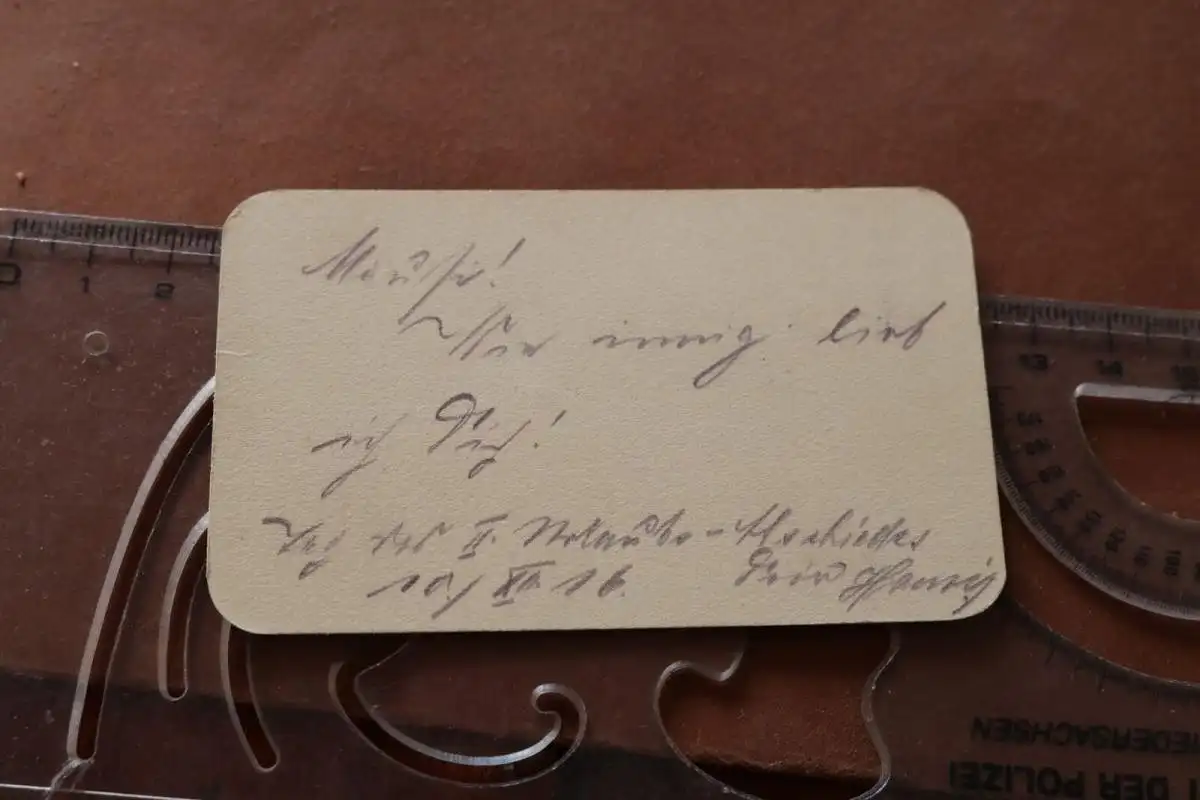 Mausi!
Wie innig lieb
ich Dich!
Tag des II. Urlaubs-Abschiedes
10/XII 16. Dein Heinrich
0 1 2
NIEDERSACHSEN
T DER POLIZEI